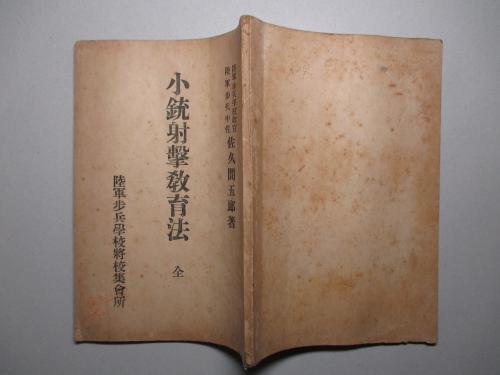 陸軍步兵學校敎官
陸軍步兵中佐
佐久間五郎著
小銃射擊敎育法
全
陸軍步兵學校將校集會所